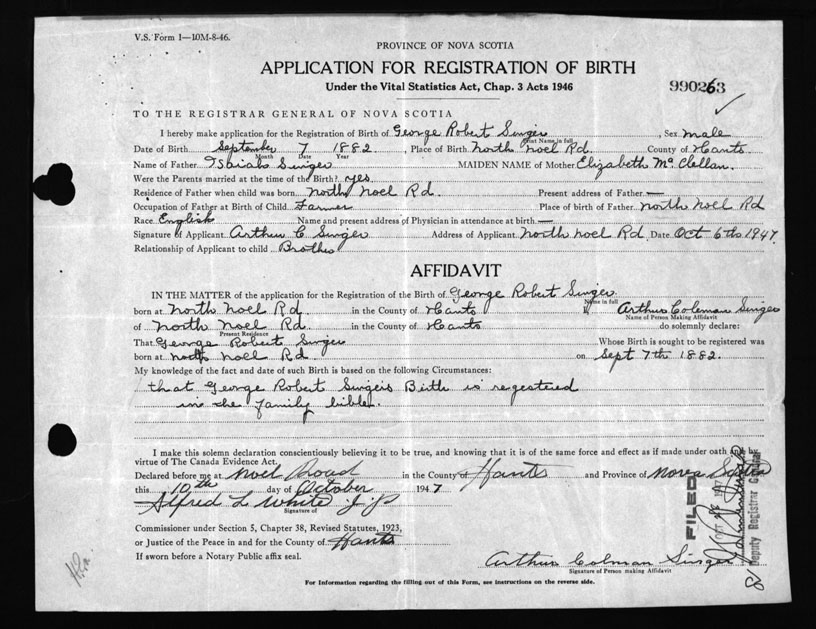 V.S. Form 1—10M-8-46.
PROVINCE OF NOVA SCOTIA
APPLICATION FOR REGISTRATION OF BIRTH
Under the Vital Statistics Act, Chap. 3 Acts 1946
990263
TO THE REGISTRAR GENERAL OF NOVA SCOTIA
I hereby make application for the Registration of Birth of George Robert Singer, Sex male
Print Name in full
Date of Birth September 7 1882, Place of Birth North Noel Rd. County of Hants
Month Date Year
Name of Father Isaiah Singer MAIDEN NAME of Mother Elizabeth Mc Clellan.
Were the Parents married at the time of the Birth? yes
Residence of Father when child was born North Noel Rd. Present address of Father —
Occupation of Father at Birth of Child Farmer Place of birth of Father North Noel Rd
Race English Name and present address of Physician in attendance at birth —
Signature of Applicant Arthur C Singer Address of Applicant North Noel Rd Date Oct 6th 1947
Relationship of Applicant to child Brother
AFFIDAVIT
IN THE MATTER of the application for the Registration of the Birth of George Robert Singer
Name in full
born at North Noel Rd. in the County of Hants I, Arthur Coleman Singer
Name of Person Making Affidavit
of North Noel Rd. in the County of Hants do solemnly declare:
Present Residence
That George Robert Singer Whose Birth is sought to be registered was
born at North Noel Rd. on Sept 7th 1882.
My knowledge of the fact and date of such Birth is based on the following Circumstances:
that George Robert Singers Birth is registered
in the family bible.
I make this solemn declaration conscientiously believing it to be true, and knowing that it is of the same force and effect as if made under oath
virtue of The Canada Evidence Act.
Declared before me at Noel Road in the County of Hants and Province of Nova Scotia
this 10th day of October 1947
Alfred L White J.P.
Signature of
Commissioner under Section 5, Chapter 38, Revised Statutes, 1923,
or Justice of the Peace in and for the County of Hants
If sworn before a Notary Public affix seal.
Arthur Colman Singer
Signature of Person making Affidavit
FILED
Deputy Registrar General
For Information regarding the filling out of this Form, see instructions on the reverse side.